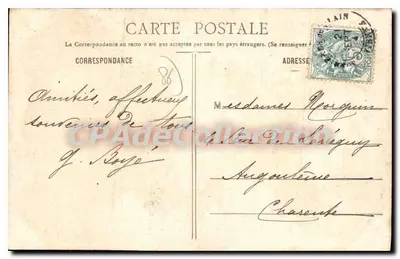 CARTE POSTALE
La Correspondance au recto n'est pas acceptée par tous les pays étrangers. (Se renseigner à
CORRESPONDANCE
ADRESSE
86
Amitiés, affectueux
souvenirs de tous
G. Boyé
Mesdames
de
Angoulême
Charente
CPA